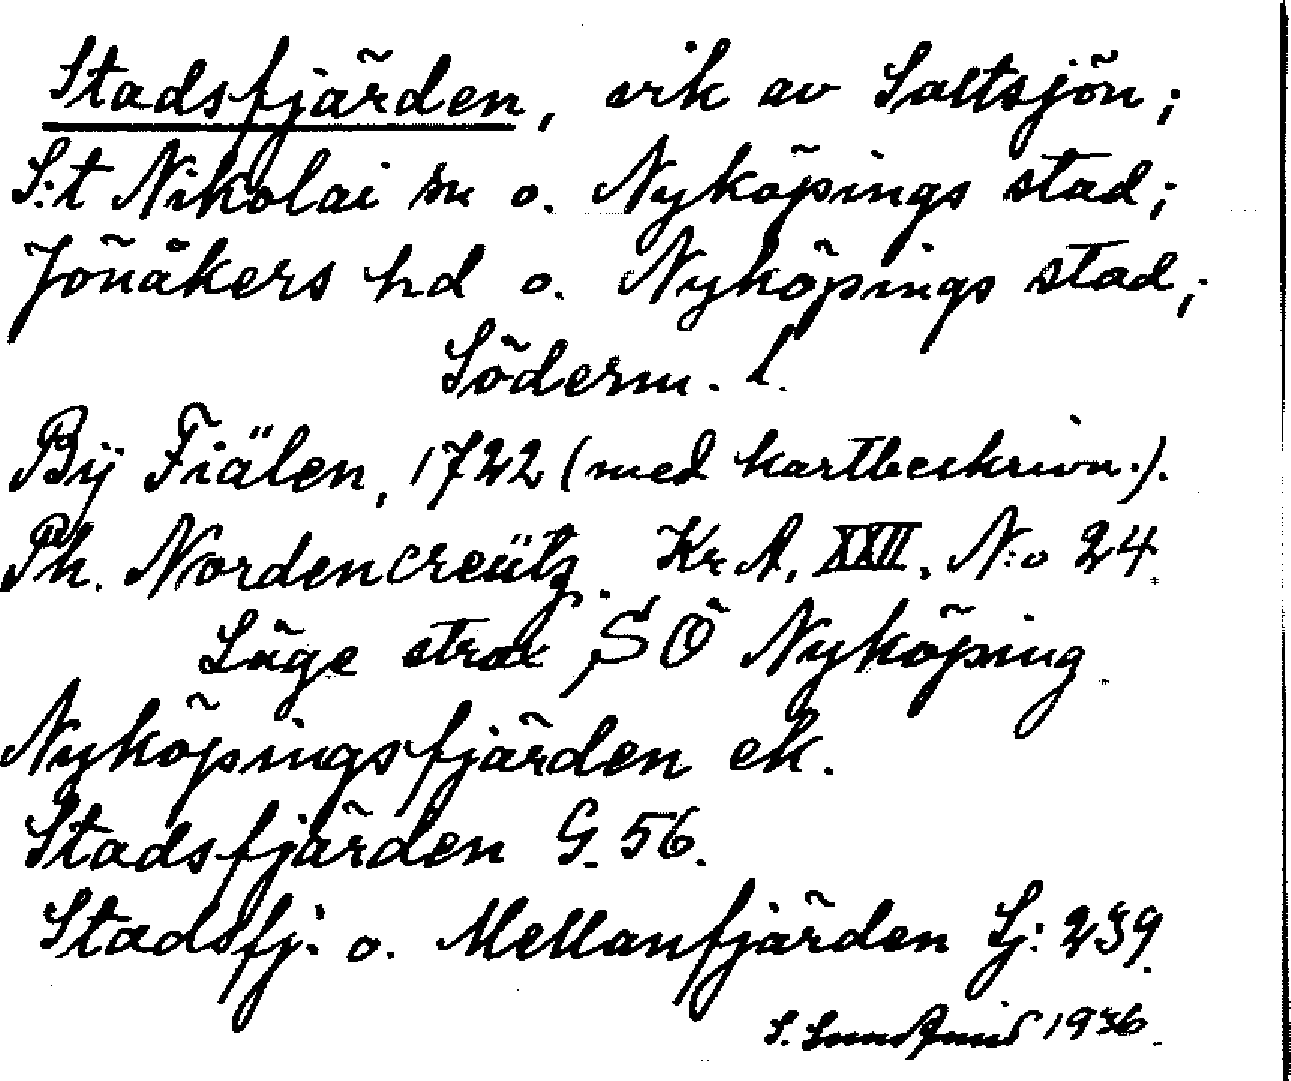 Stadsfjärden, vik av Saltsjön;
S:t Nikolai sn o. Nyköpings stad;
Jönåkers hd o. Nyköpings stad;
Söderm. l.
Bÿ Fiälen, 1722 (med kartbeskrivn.).
Ph. Nordencreütz. Kr. A. XXII. N:o 24.
Läge strax SÖ Nyköping
Nyköpingsfjärden ek.
Stadsfjärden G. 56.
Stadsfj. o. Mellanfjärden Lj: 239.
S. 1936.